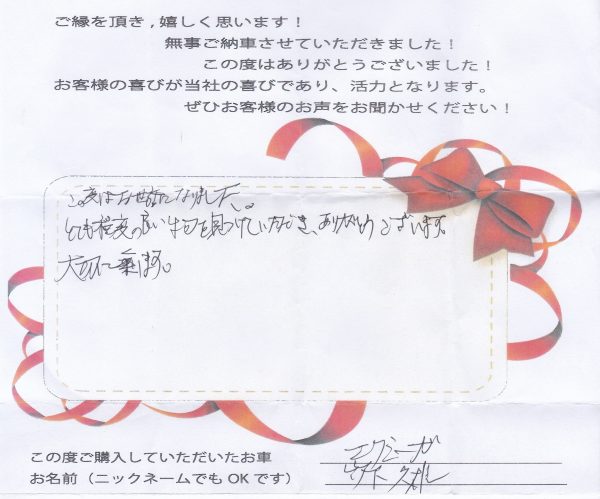 ご縁を頂き,嬉しく思います！
無事ご納車させていただきました！
この度はありがとうございました！
お客様の喜びが当社の喜びであり、活力となります。
ぜひお客様のお声をお聞かせください！
この度はお世話になりました。
とても程度の良い車を見つけていただき、ありがとうございます。
大切に乗ります。
この度ご購入していただいたお車
お名前（ニックネームでもOKです）